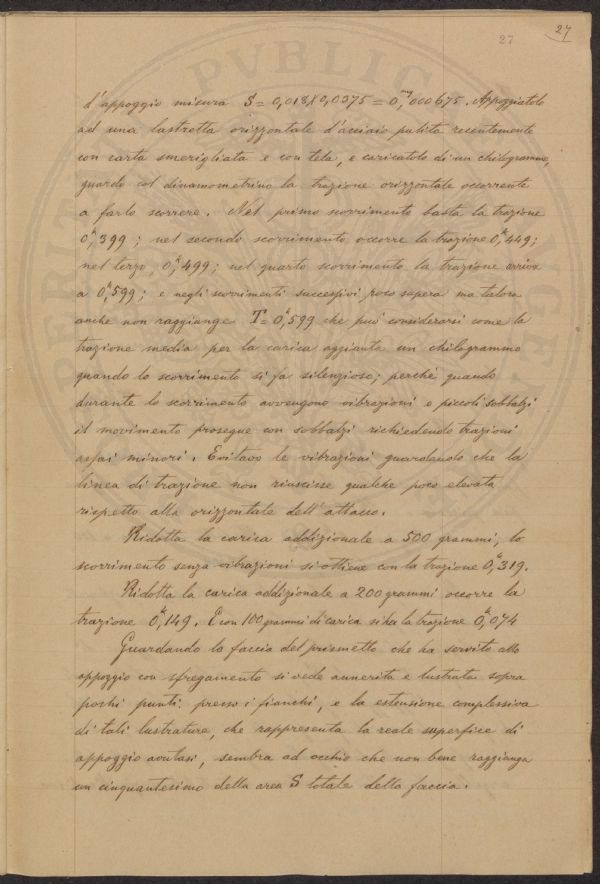 27
27
d'appoggio misura S = 0,018 × 0,0375 = 0,ᵐ000675. Appoggiatolo
ad una lastretta orizzontale d'acciaio pulita recentemente
con carta smerigliata e con tela, e caricatolo di un chilogrammo,
guardo col dinamometrino la trazione orizzontale occorrente
a farlo scorrere. Nel primo scorrimento basta la trazione
0,ᵏ399; nel secondo scorrimento occorre la trazione 0,ᵏ449;
nel terzo, 0,ᵏ499; nel quarto scorrimento la trazione arriva
a 0,ᵏ599; e negli scorrimenti successivi poco supera ma talora
anche non raggiunge T = 0,ᵏ599 che può considerarsi come la
trazione media per la carica aggiunta un chilogrammo
quando lo scorrimento si fa silenzioso; perchè quando
durante lo scorrimento avvengono vibrazioni e piccoli sobbalzi
il movimento prosegue con sobbalzi richiedendo trazioni
assai minori. Evitavo le vibrazioni guardando che la
linea di trazione non riuscisse qualche poco elevata
rispetto alla orizzontale dell'attacco.
Ridotta la carica addizionale a 500 grammi, lo
scorrimento senza vibrazioni si ottiene con la trazione 0,ᵏ319.
Ridotta la carica addizionale a 200 grammi occorre la
trazione 0,ᵏ149. E con 100 grammi di carica si ha la trazione 0,ᵏ074
Guardando la faccia del prismetto che ha servito allo
appoggio con sfregamento si vede annerita e lustrata sopra
pochi punti presso i fianchi, e la estensione complessiva
di tali lustrature, che rappresenta la reale superfice di
appoggio avutasi, sembra ad occhio che non bene raggiunga
un cinquantesimo della area S totale della faccia.